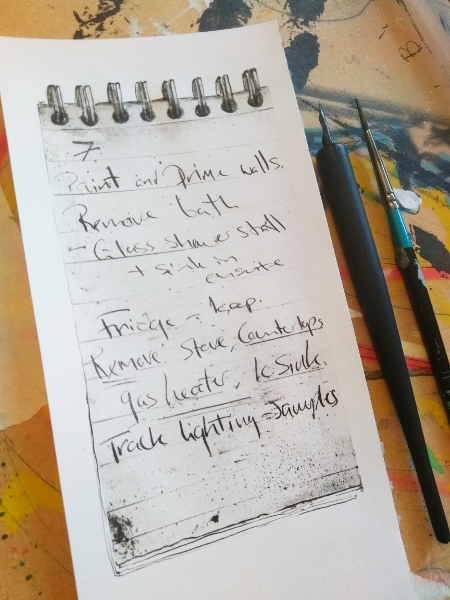 7.
Paint and Prime walls.
Remove bath
- Glass shower stall
+ Sink in
ensuite
Fridge - keep.
Remove Stove, Countertops
gas heater, k. Sink.
Track lighting - samples